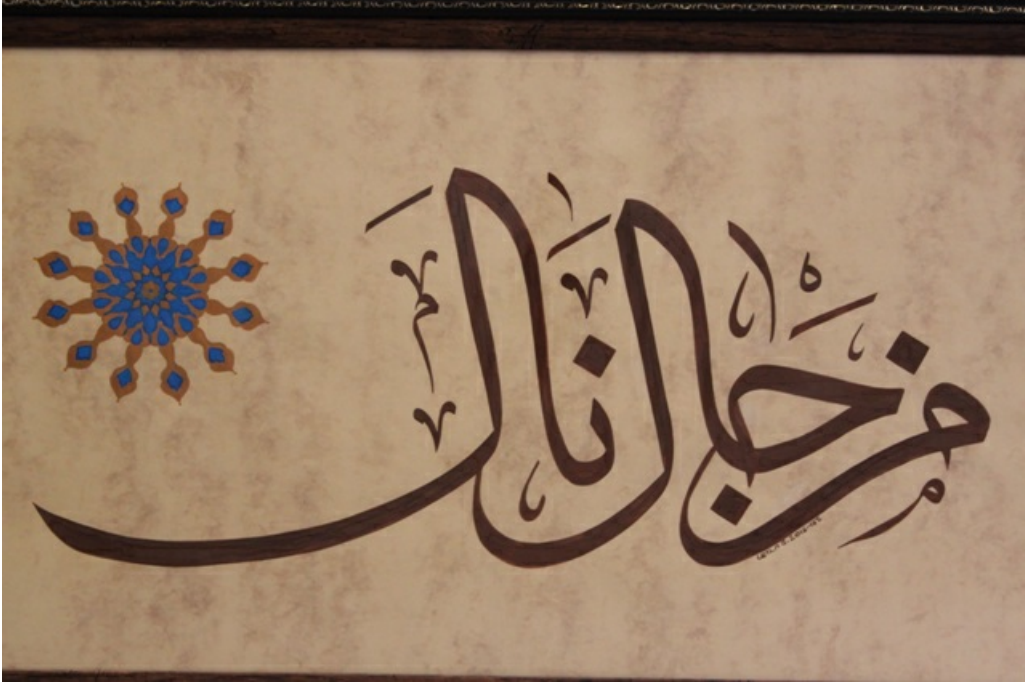 من جال نال